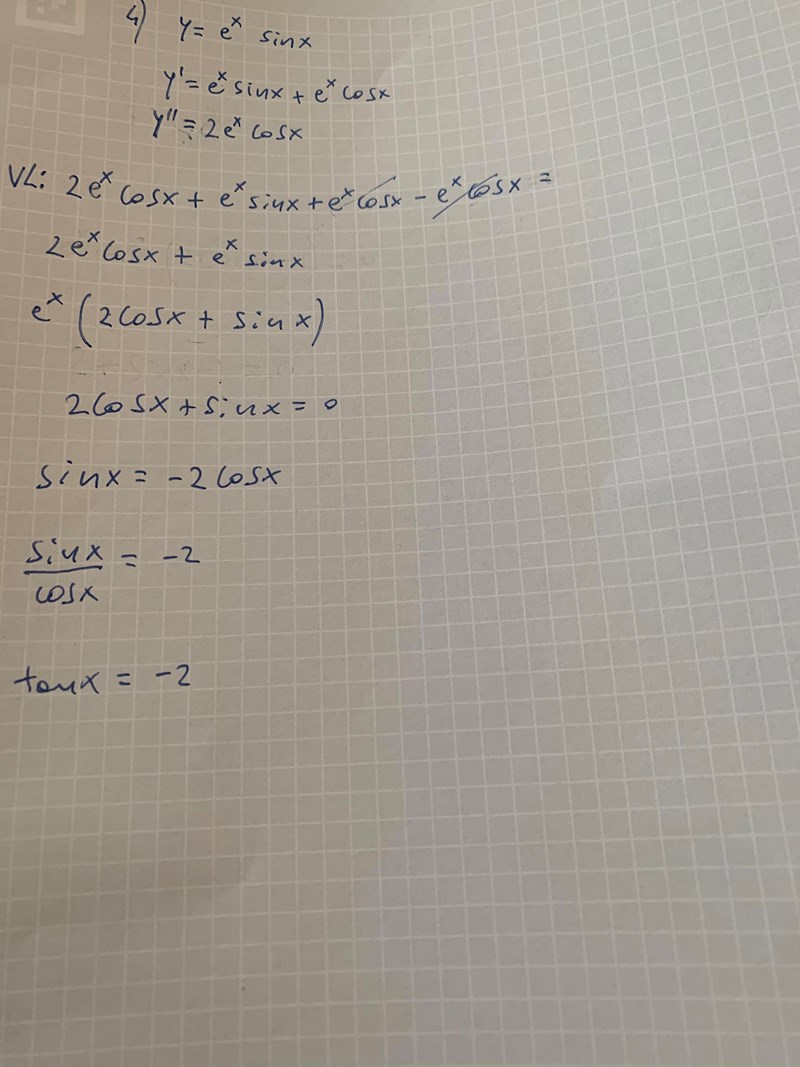 4) y = eˣ sinx
y' = eˣ sinx + eˣ cosx
y'' = 2eˣ cosx
VL: 2eˣ cosx + eˣ sinx + eˣ cosx - eˣ cosx =
2eˣ cosx + eˣ sinx
eˣ (2cosx + sinx)
2cosx + sinx = 0
sinx = -2cosx
sinx/cosx = -2
tanx = -2